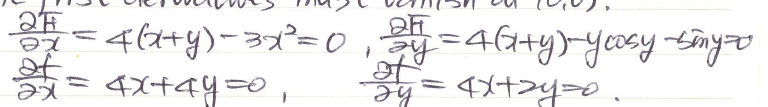 first derivatives must vanish at (0,0).
∂F/∂x = 4(x+y) - 3x² = 0 , ∂F/∂y = 4(x+y) - y cos y - sin y = 0
∂f/∂x = 4x + 4y = 0 , ∂f/∂y = 4x + 2y = 0 .